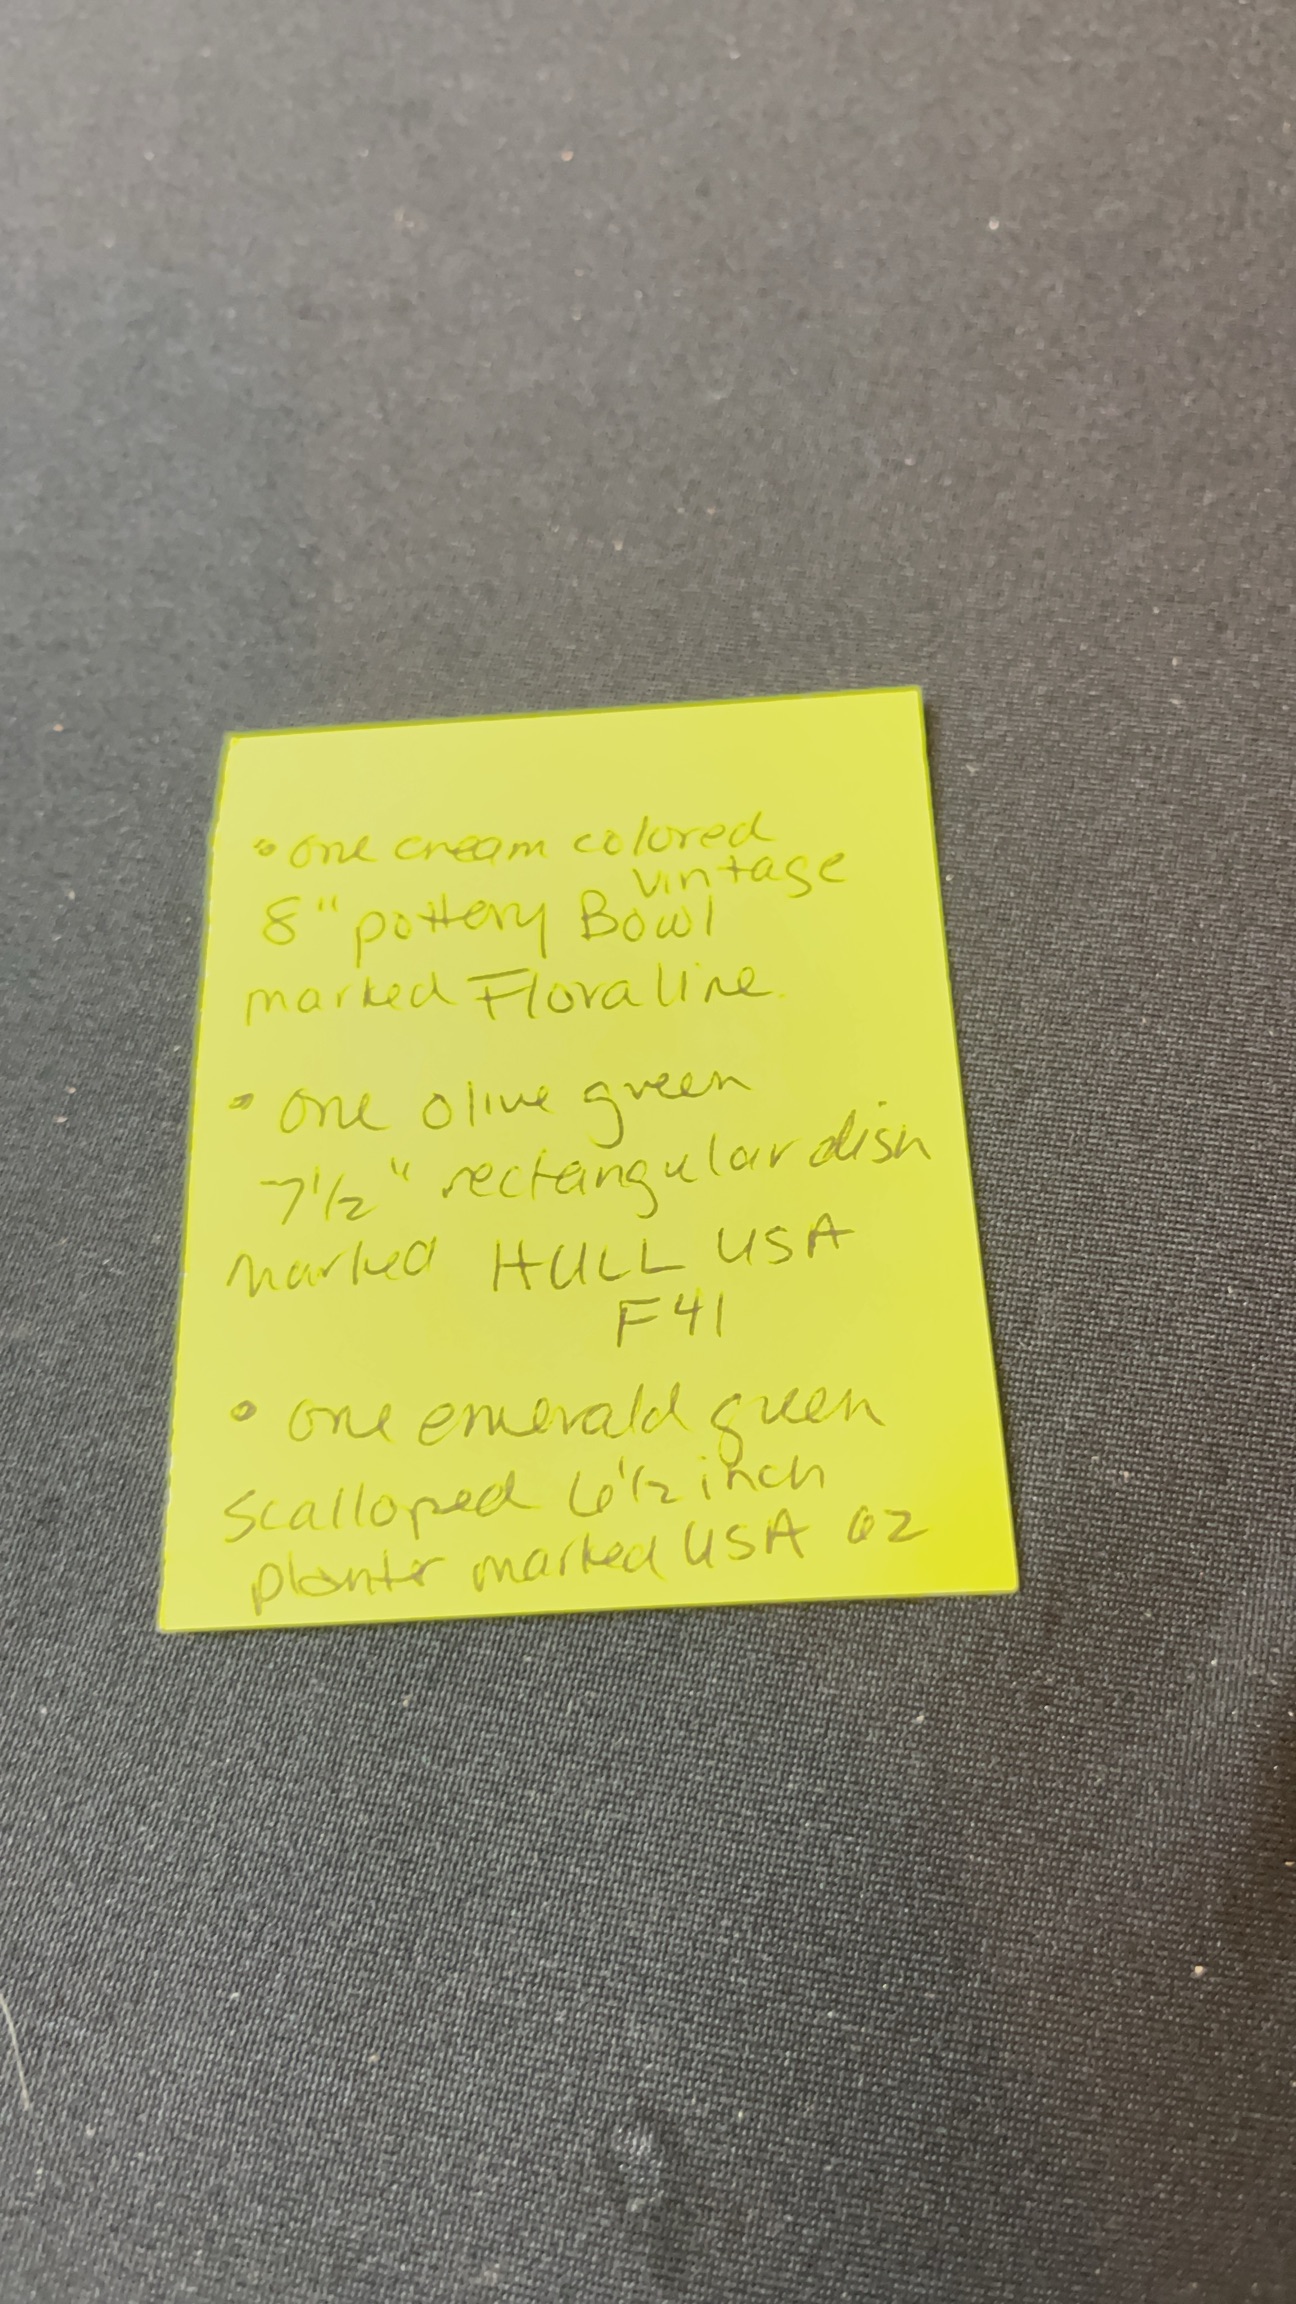 • one cream colored
vintage
8" pottery Bowl
marked Floraline.
• one olive green
7 1/2" rectangular dish
marked HULL USA
F41
• one emerald green
scalloped 6 1/2 inch
planter marked USA 02